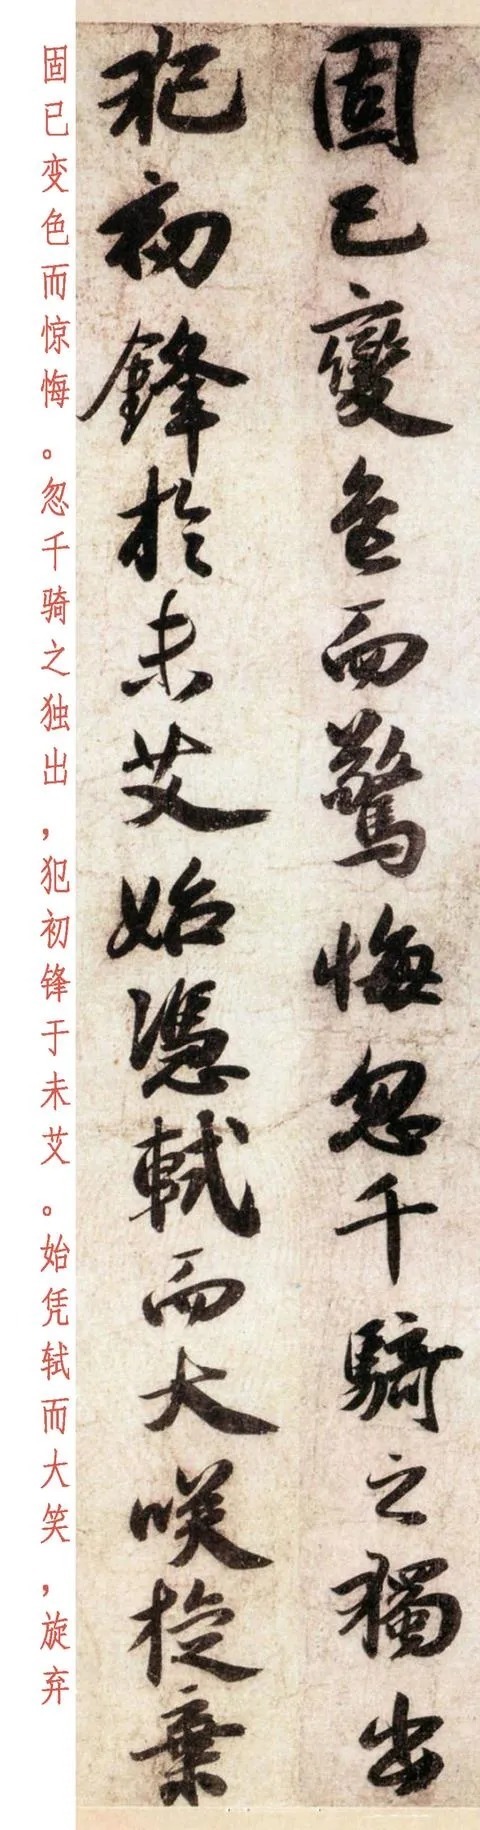 固已變色而驚悔忽千騎之獨出
犯初鋒於未艾始憑軾而大咲旋棄
固已变色而惊悔。忽千骑之独出，犯初锋于未艾。始凭轼而大笑，旋弃